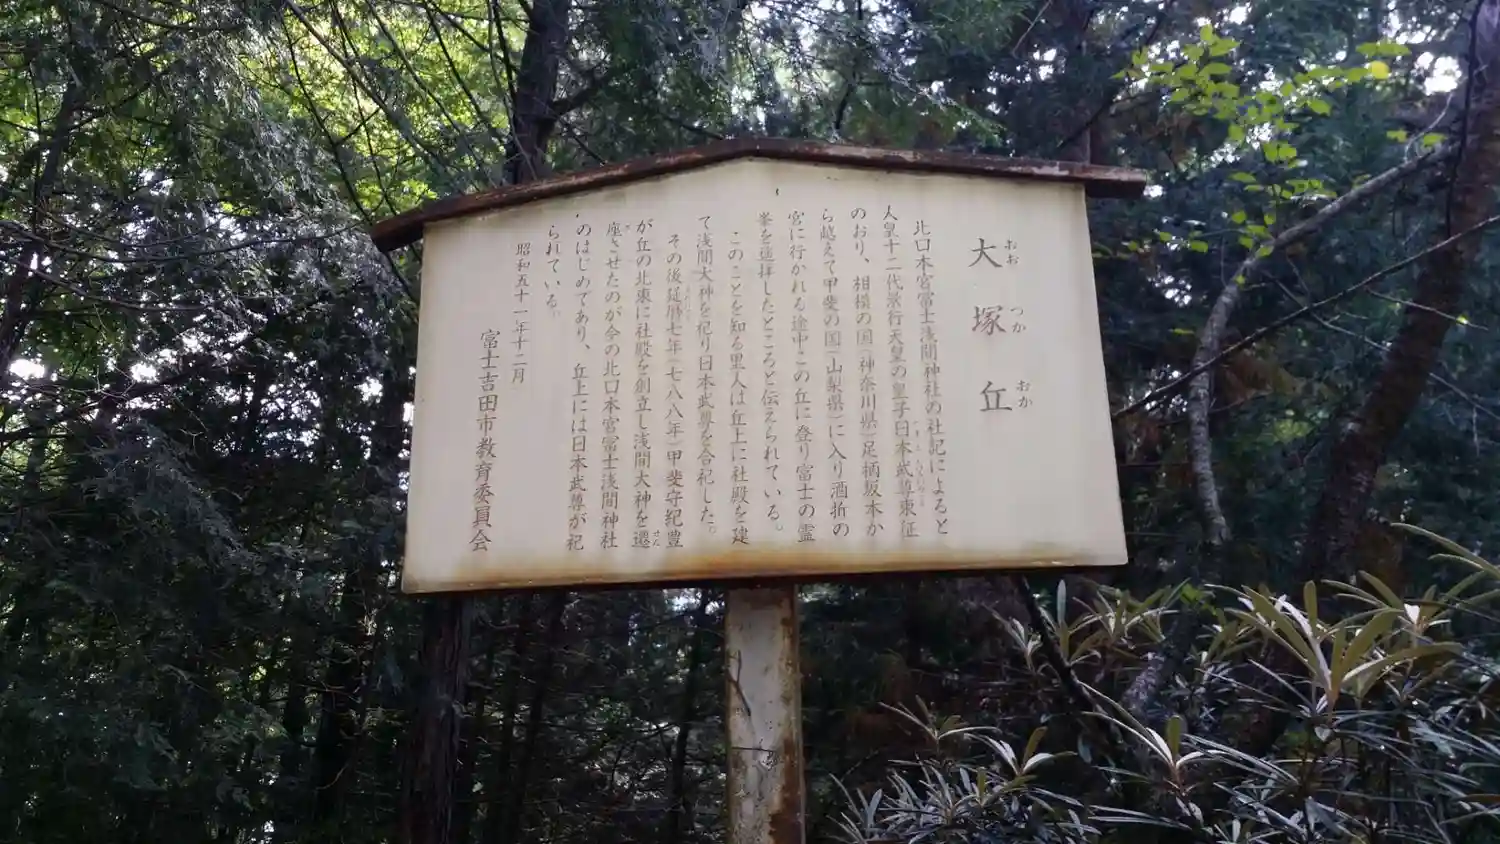 大塚丘
おお つか おか
北口本宮冨士浅間神社の社記によると
人皇十二代景行天皇の皇子日本武尊東征
のおり、相模の国（神奈川県）足柄坂本か
ら越えて甲斐の国（山梨県）に入り酒折の
宮に行かれる途中この丘に登り富士の霊
峯を遥拝したところと伝えられている。
このことを知る里人は丘上に社殿を建
て浅間大神を祀り日本武尊を合祀した。
その後延暦七年（七八八年）甲斐守紀豊
が丘の北東に社殿を創立し浅間大神を遷
座させたのが今の北口本宮冨士浅間神社
のはじめであり、丘上には日本武尊が祀
られている。
昭和五十一年十二月
富士吉田市教育委員会